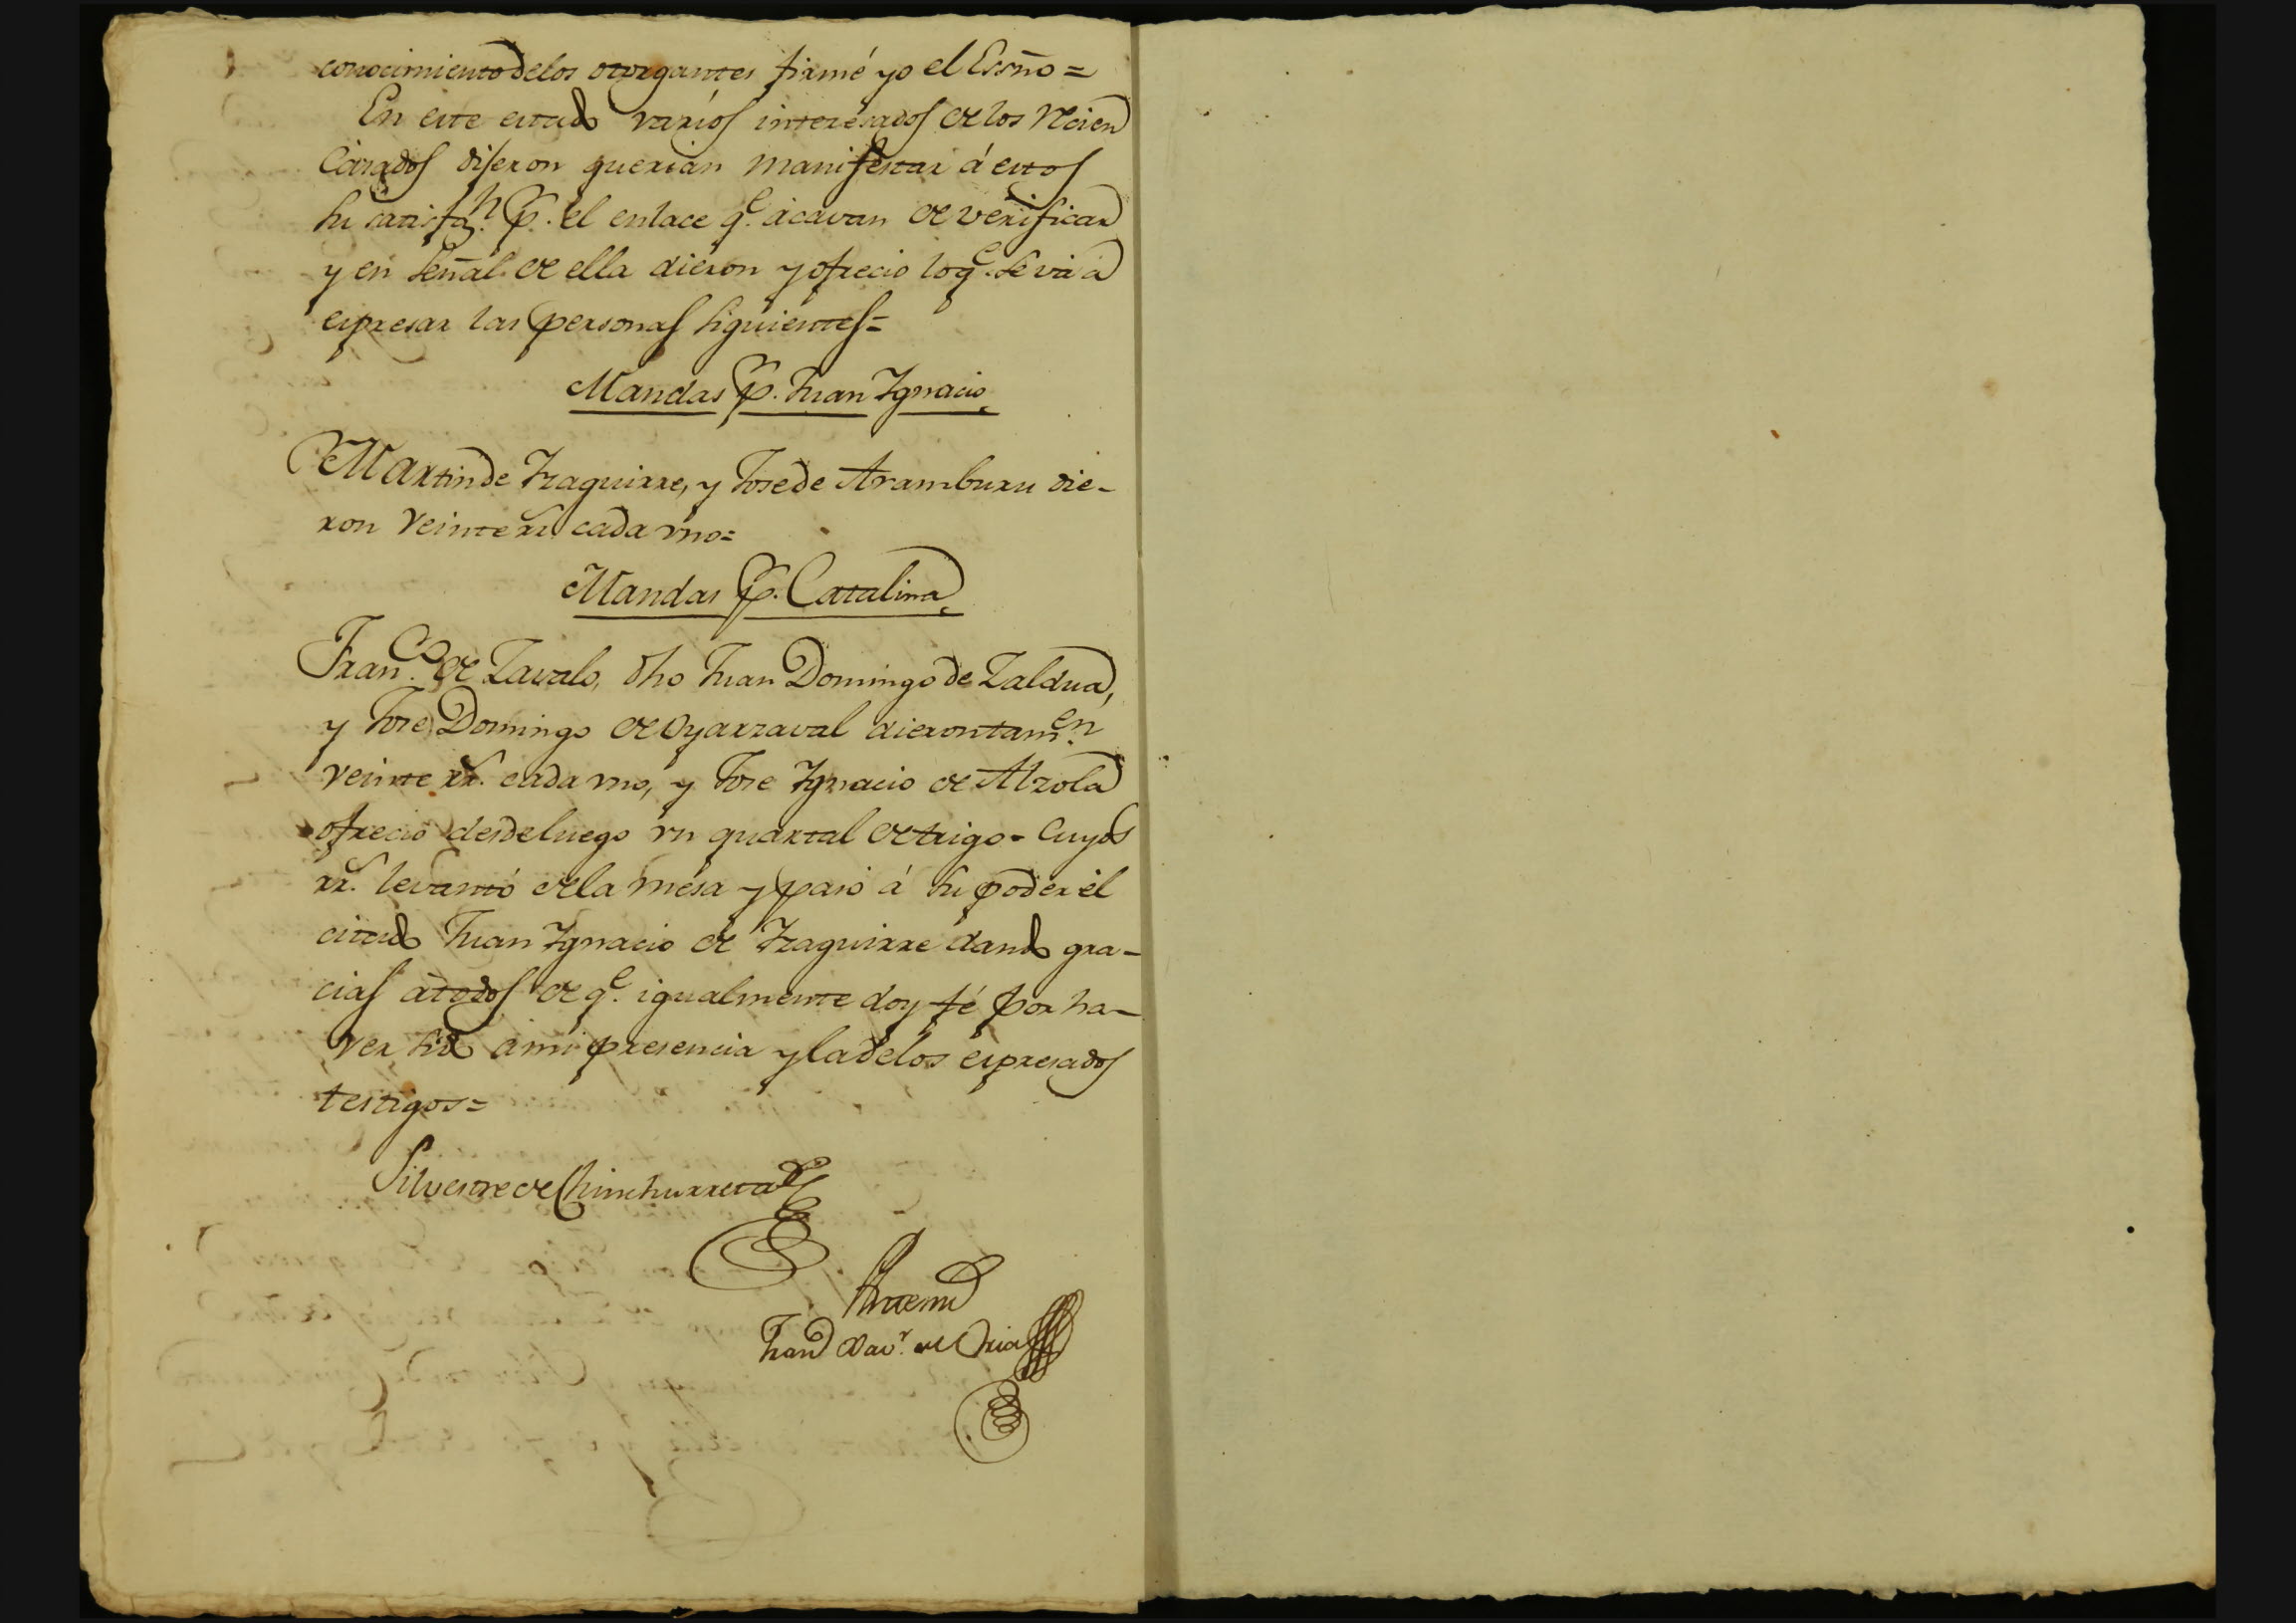 conocimiento de los otorgantes firmé yo el Essño=
En este estado varios interesados de los recien
casados dijeron querian manifestar á estos
su satisfan. p. el enlace qe. acavan de verificar
y en señal de ella dieron y ofrecio lo qe. se va a
espresar las personas siguientes=
Mandas p. Juan Ygnacio
Martin de Yzaguirre, y Jose de Aramburu die-
ron veinte rs. cada vno=
Mandas p. Catalina
Franco. de Zavalo, dho Juan Domingo de Zaldua,
y Jose Domingo de Oyarzaval dieron tamen.
veinte rs. cada vno, y Jose Ygnacio de Alzola
ofrecio desde luego vn quartal de trigo= Cuyos
rs. levantó de la mesa y pasó á su poder el
citado Juan Ygnacio de Yzaguirre dando gra-
cias a todos de qe. igualmente doy fé por ha-
ver sido a mi presencia y la de los espresados
testigos=
Silvestre de Chinchurreta
Ante mi
Juan Xavr. de Oria